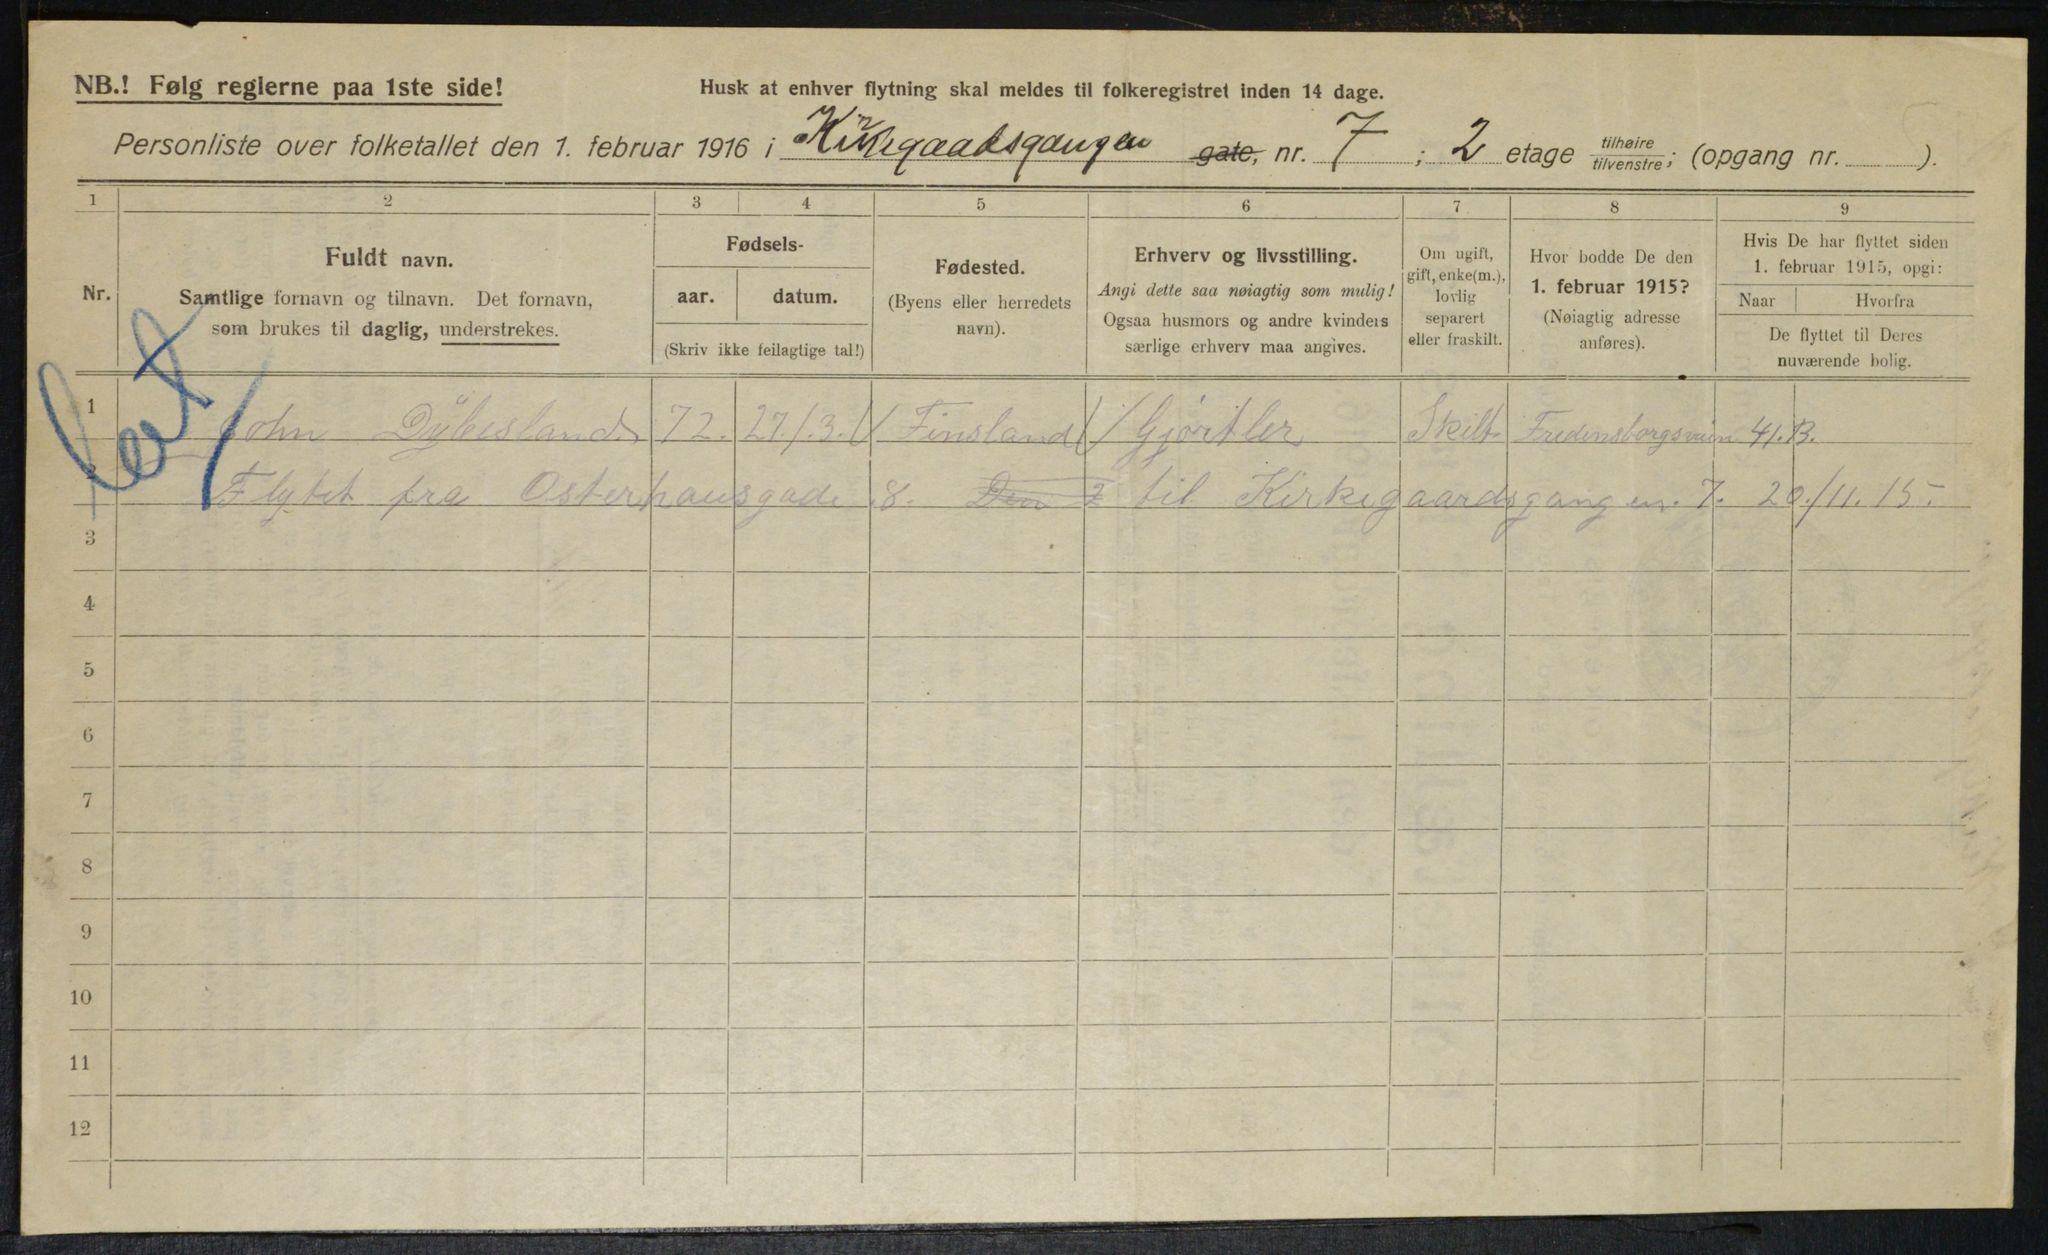 NB.! Følg reglerne paa 1ste side!
Husk at enhver flytning skal meldes til folkeregistret inden 14 dage.
Personliste over folketallet den 1. februar 1916 i Kirkegaadsgangen gate, nr. 7; 2 etage tilhøire/tilvenstre; (opgang nr. ).
1 2 3 4 5 6 7 8 9
Nr.
Fuldt navn.
Samtlige fornavn og tilnavn. Det fornavn,
som brukes til daglig, understrekes.
Fødsels-
aar. datum.
(Skriv ikke feilagtige tal!)
Fødested.
(Byens eller herredets
navn).
Erhverv og livsstilling.
Angi dette saa nøiagtig som mulig!
Ogsaa husmors og andre kvinders
særlige erhverv maa angives.
Om ugift,
gift, enke(m.),
lovlig
separert
eller fraskilt.
Hvor bodde De den
1. februar 1915?
(Nøiagtig adresse
anføres).
Hvis De har flyttet siden
1. februar 1915, opgi:
Naar Hvorfra
De flyttet til Deres
nuværende bolig.
1 John Dybesland 72. 27/.3. Finsland Gjørtler Skilt Fredensborgsveien 41.B.
2 Flytet fra Osterhausgade 8. Den 2 til Kirkegaardsgangen. 7. 20/11.15.
3
4
5
6
7
8
9
10
11
12